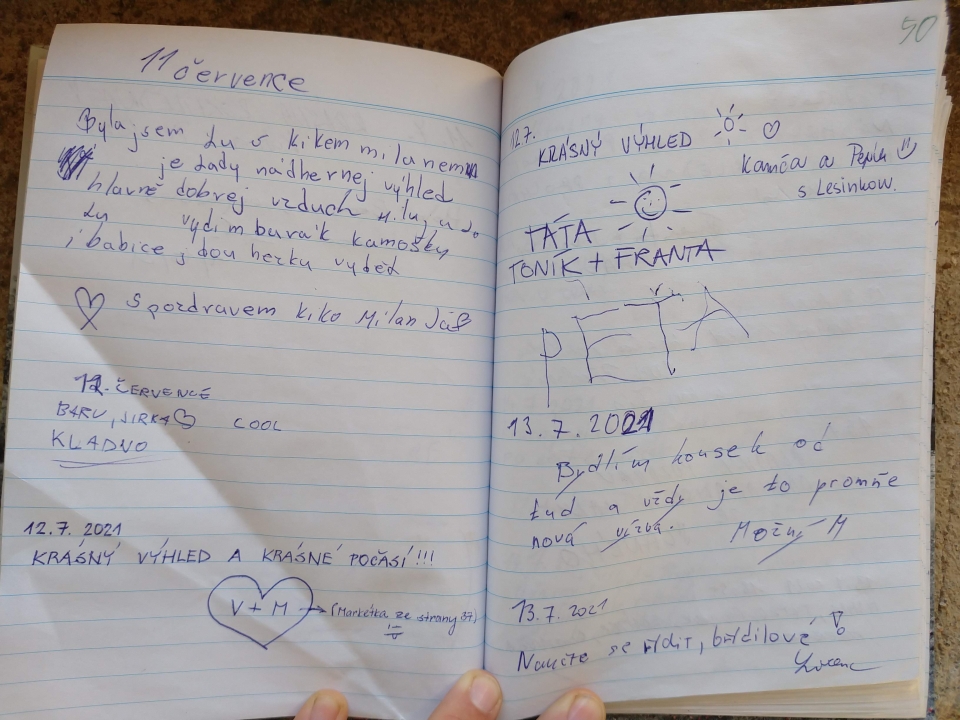 11 července
Byla jsem zu s kikem milanem
je zady nádhernej výhled
hlavně dobrej vzduch
zu vydim burák kamošky
i babice jdou hezku
S pozdravem kiko Milan
12. ČERVENCE
BARU, JIRKA COOL
KLADNO
12.7. 2021
KRÁSNÝ VÝHLED A KRÁSNÉ POČASÍ!!!
V + M → (Markétka ze strany 37)
50
12.7.
KRÁSNÝ VÝHLED
Kamča a Pepík
s Lesinkou.
TÁTA
TONÍK + FRANTA
PEŤA
13.7.2021
Bydlím kousek od
tud a vždy je to promně
nová výzva.
13.7.2021
Naučte se řídit, břídilové!